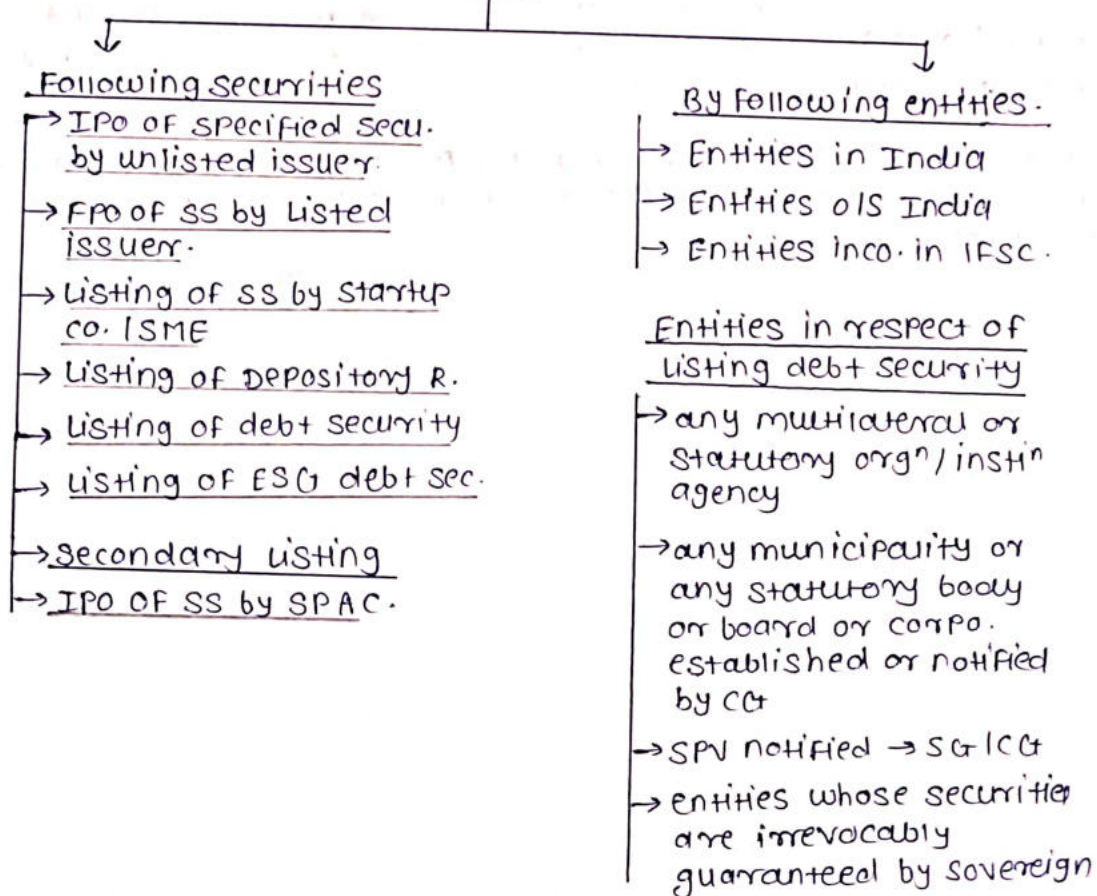 Following securities
→ IPO OF specified secu.
by unlisted issuer.
→ FPO OF SS by Listed
issuer.
→ Listing of SS by Startup
co. / SME
→ Listing of Depository R.
→ Listing of debt security
→ Listing of ESG debt sec.
→ secondary Listing
→ IPO OF SS by SPAC.
By Following entities.
→ Entities in India
→ Entities o/s India
→ Entities inco. in IFSC.
Entities in respect of
Listing debt security
→ any multilateral or
Statutory orgⁿ / instiⁿ
agency
→ any municipality or
any statutory body
or board or corpo.
established or notified
by CG
→ SPV notified → SG / CG
→ entities whose securities
are irrevocably
guaranteed by sovereign